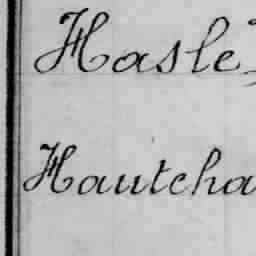 Hasle
Hautcha